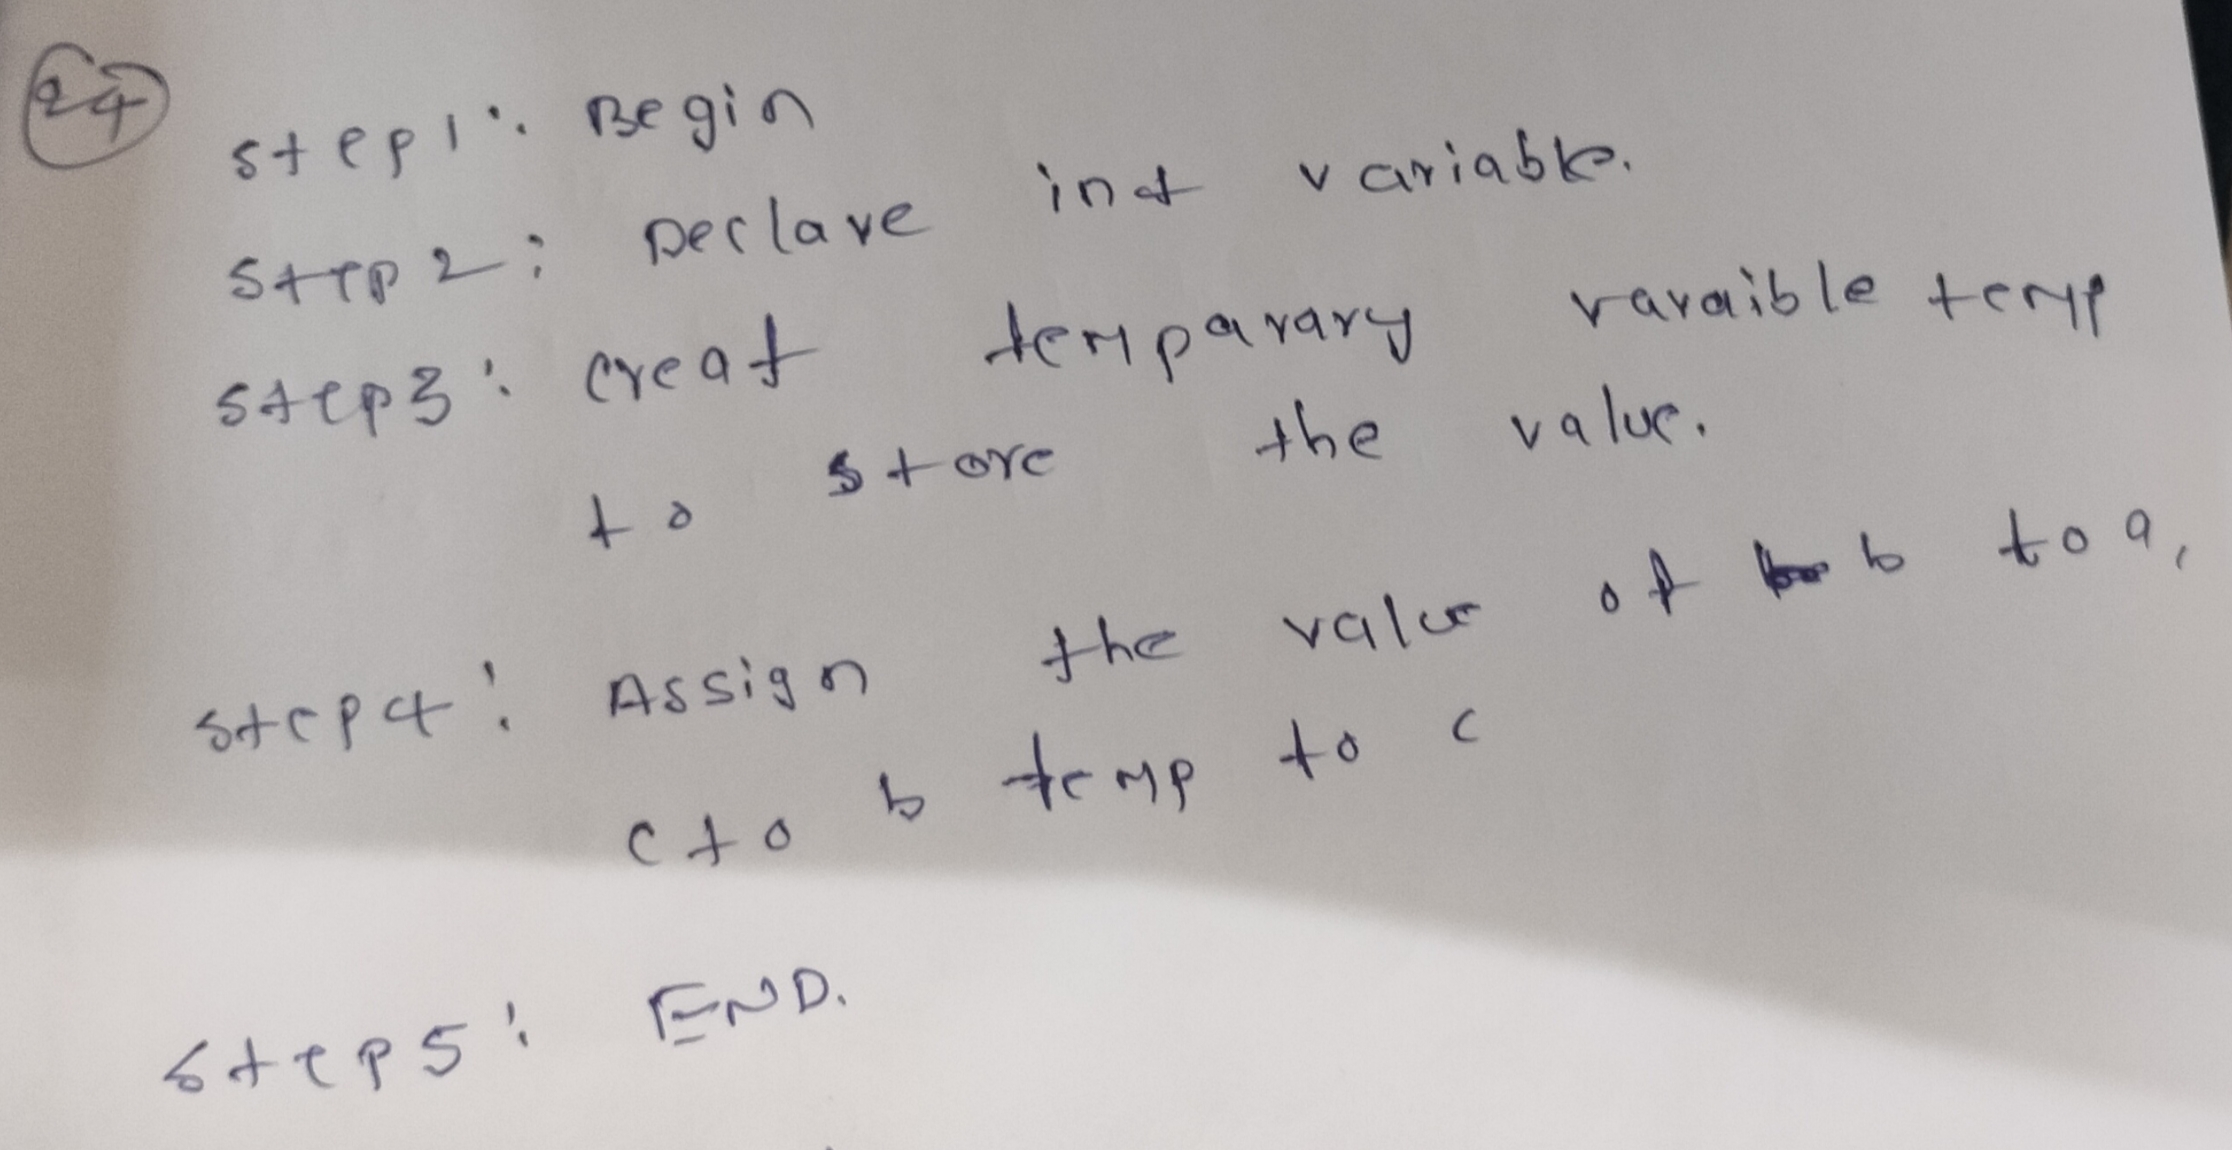 24
Step1: Begin
Step2: Declare int variable.
Step3: creat temparary varaible temp
to store the value.
Step4: Assign the value of b to a,
c to b temp to c
Step5: END.